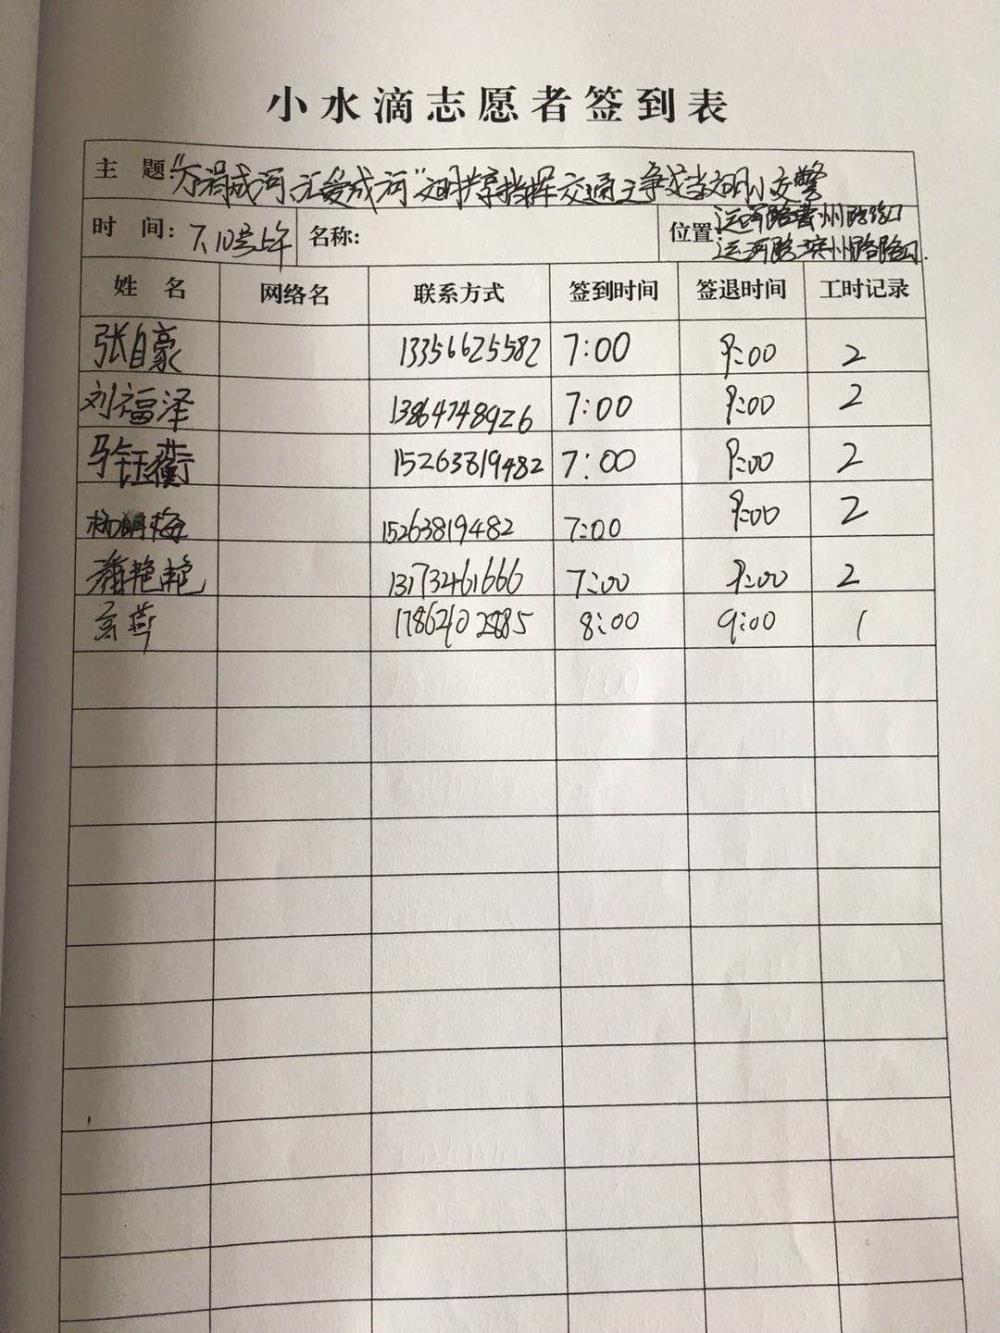 小水滴志愿者签到表
主 题:"万涓成河,汇爱成河"文明共享指挥交通,争当文明小交警
时 间: 7.10号上午 名称: 位置 运河路贵州路路口
运河路滨州路路口.
姓 名 网络名 联系方式 签到时间 签退时间 工时记录
张自豪 13356625582 7:00 9:00 2
刘福泽 13864748926 7:00 9:00 2
马钰衡 15263819482 7:00 9:00 2
杨明梅 15263819482 7:00 9:00 2
艳艳 13173461666 7:00 9:00 2
高燕 17862102885 8:00 9:00 1